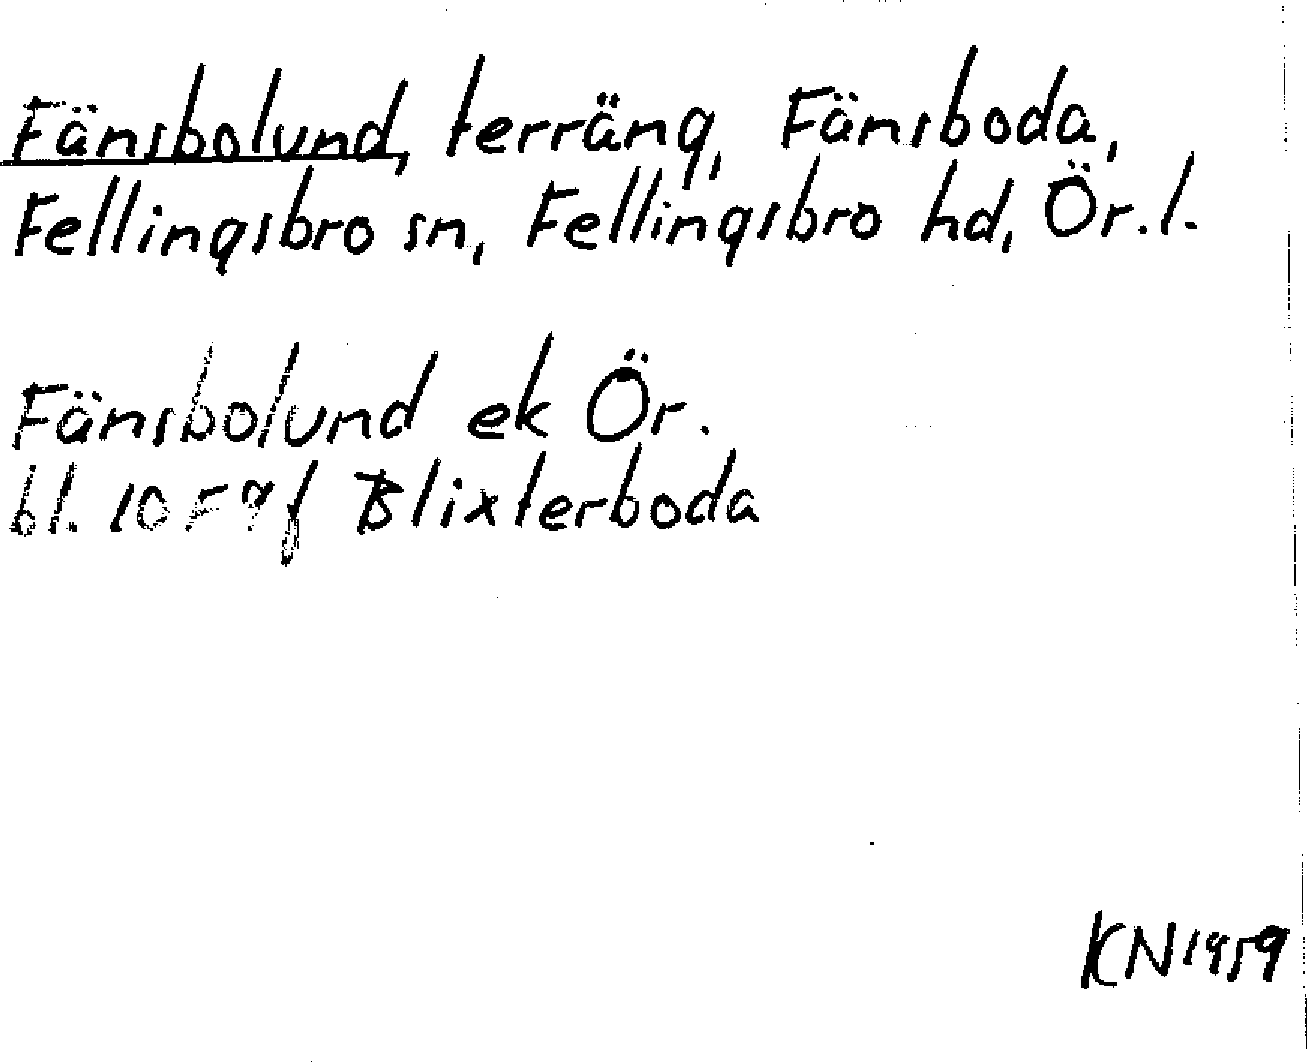 Fänsbolund, terräng, Fänsboda,
Fellingsbro sn, Fellingsbro hd, Ör.l.
Fänsbolund ek Ör.
bl. 10 F 9f Blixterboda
KN 1959